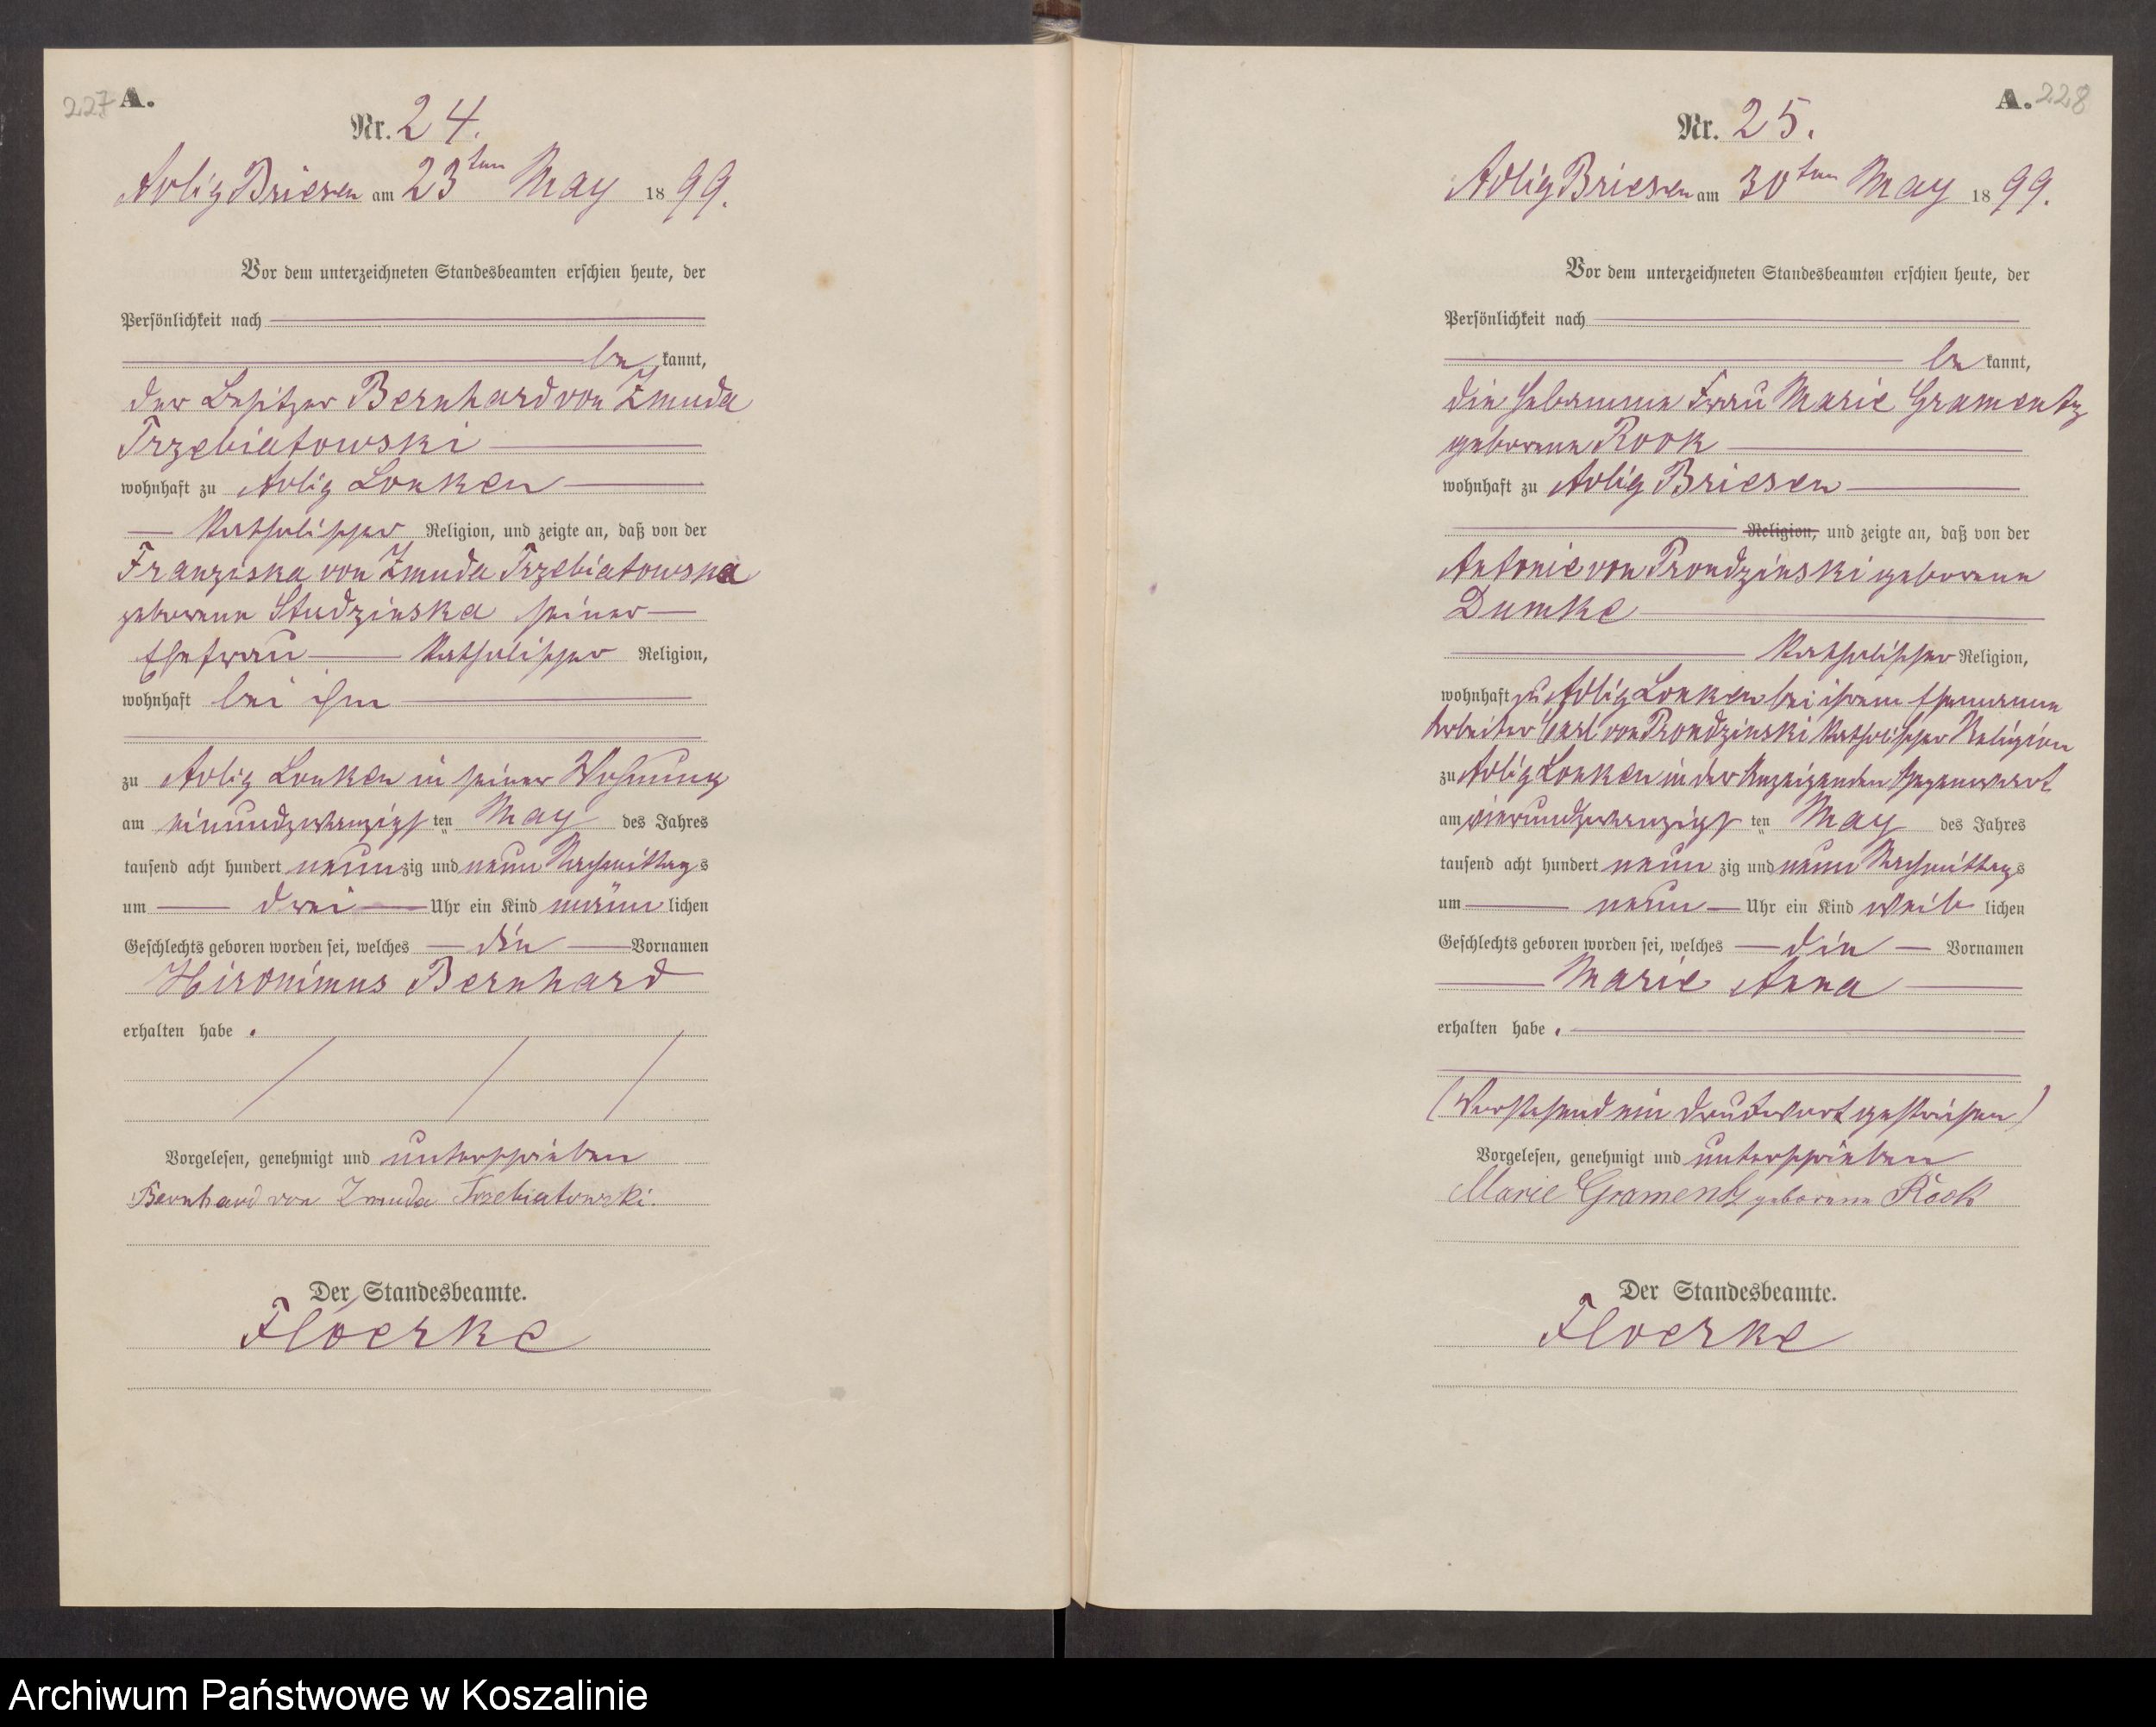 227 A.
Nr. 24.
Adlig Briesen am 23ten May 1899.
Vor dem unterzeichneten Standesbeamten erschien heute, der
Persönlichkeit nach
be kannt,
der Besitzer Bernhard von Zmuda
Trzebiatowski
wohnhaft zu Adlig Lonken
katholischer Religion, und zeigte an, daß von der
Franziska von Zmuda Trzebiatowska
geborene Studzinska seiner
Ehefrau katholischer Religion,
wohnhaft bei ihm
zu Adlig Lonken in seiner Wohnung
am einundzwanzigsten May des Jahres
tausend acht hundert neunzig und neun Nachmittags
um drei Uhr ein Kind männlichen
Geschlechts geboren worden sei, welches die Vornamen
Hironimus Bernhard
erhalten habe.
Vorgelesen, genehmigt und unterschrieben
Bernhard von Zmuda Trzebiatowski.
Der Standesbeamte.
Floerke
A. 228
Nr. 25.
Adlig Briesen am 30ten May 1899.
Vor dem unterzeichneten Standesbeamten erschien heute, der
Persönlichkeit nach
be kannt,
die Hebamme Frau Marie Gramentz
geborene Rook
wohnhaft zu Adlig Briesen
Religion, und zeigte an, daß von der
Antonie von Prondzinski geborene
Dumke
katholischer Religion,
wohnhaft zu Adlig Lonken bei ihrem Ehemanne
Arbeiter Carl von Prondzinski katholischer Religion
zu Adlig Lonken in der Anzeigenden Gegenwart
am vierundzwanzigsten May des Jahres
tausend acht hundert neunzig und neun Nachmittags
um neun Uhr ein Kind weiblichen
Geschlechts geboren worden sei, welches die Vornamen
Marie Anna
erhalten habe.
(Vorstehend ein Druckwort gestrichen)
Vorgelesen, genehmigt und unterschrieben
Marie Gramentz geborene Rook
Der Standesbeamte.
Floerke
Archiwum Państwowe w Koszalinie